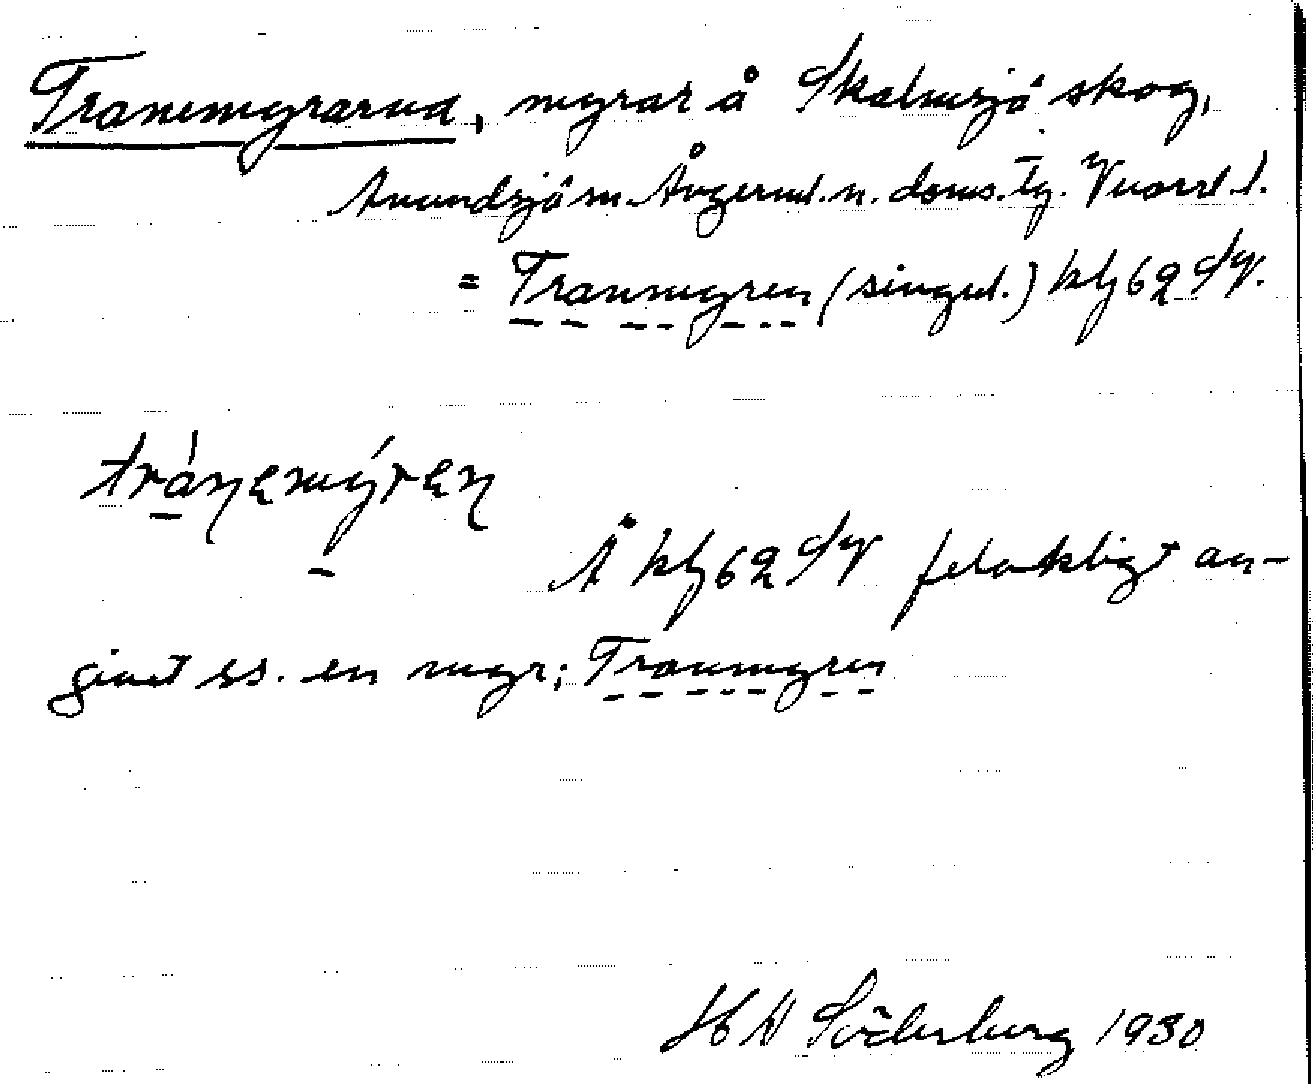 Tranemyrarna, myrar å Skalmsjö skog,
Anundsjö sn. Ångerml. n. doms. tg. Vnorrl. l.
= Tranmyren (singul.) kbl 62 SV.
tránemýren
Å kbl 62 SV felaktligt an-
givet ss. en myr; Tranmyren
KW Söderberg 1930